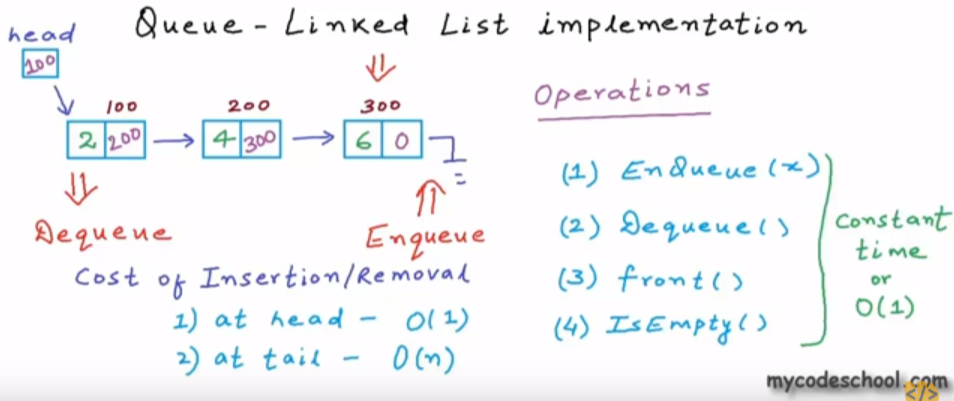 Queue - Linked List implementation
head
100
100 200 300
2 200 4 300 6 0
Dequeue
Enqueue
Cost of Insertion/Removal
1) at head - O(1)
2) at tail - O(n)
Operations
(1) EnQueue(x)
(2) Dequeue()
(3) front()
(4) IsEmpty()
Constant
time
or
O(1)
mycodeschool.com
</>